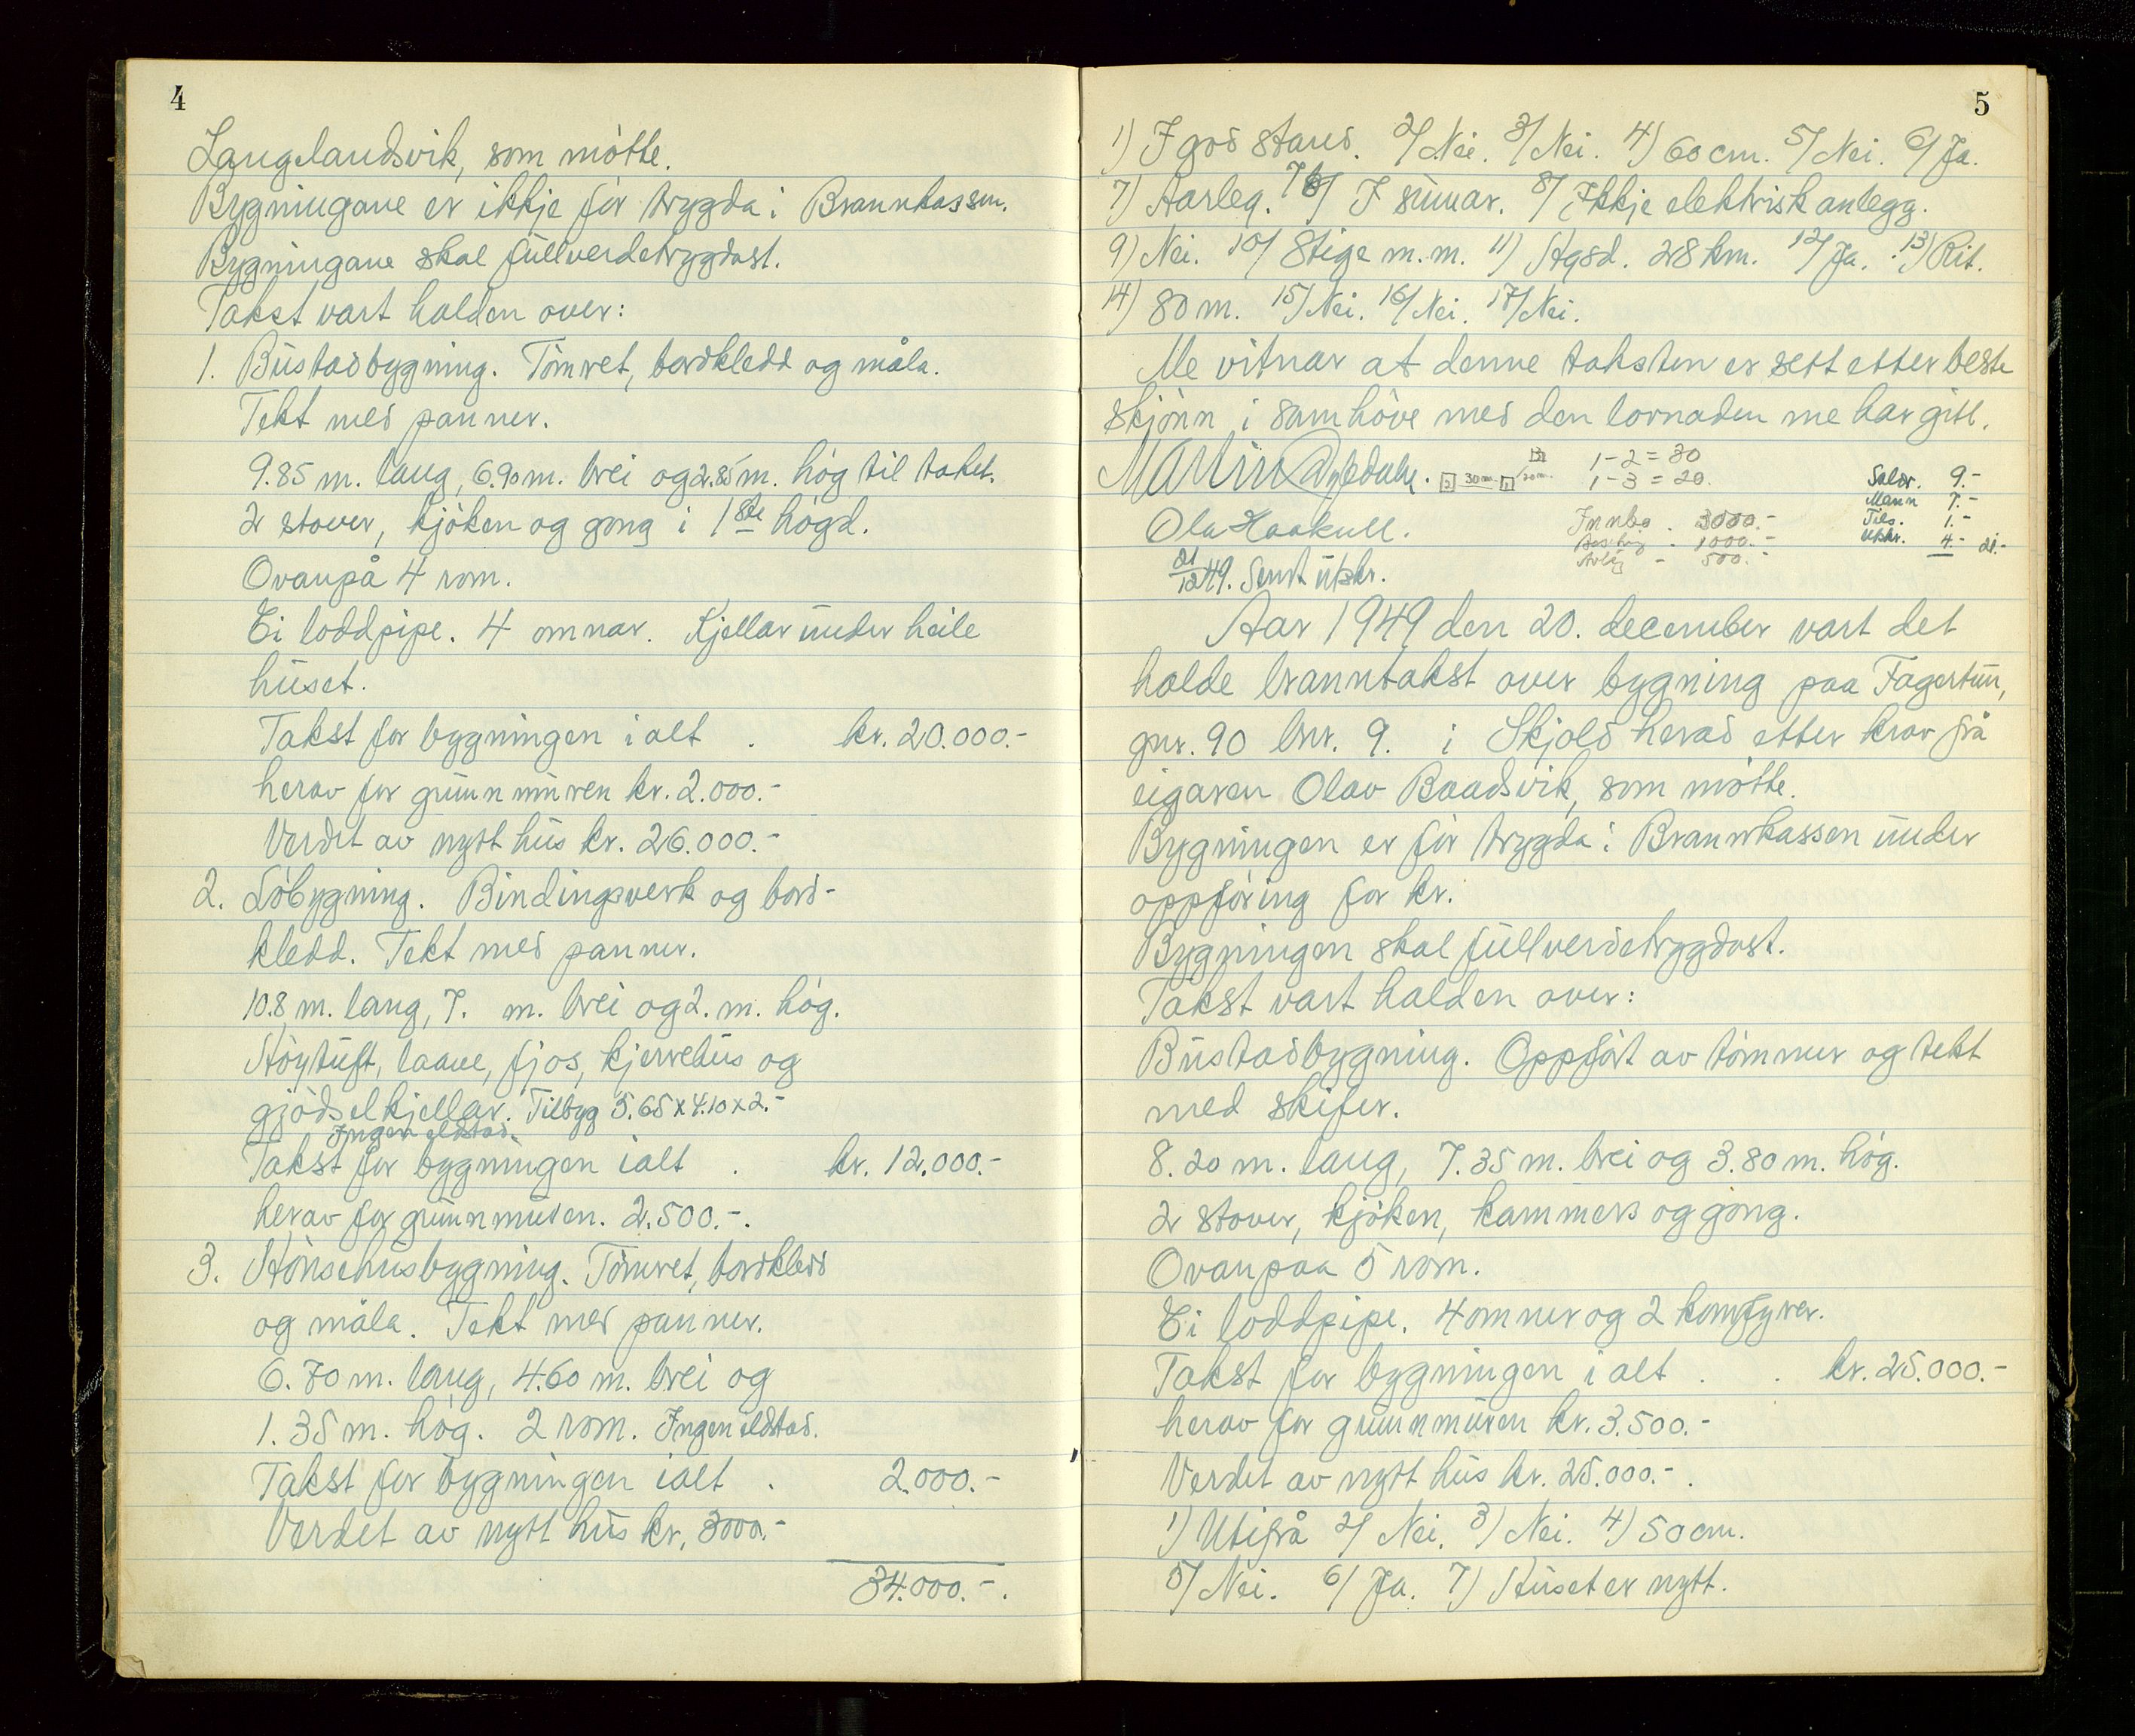 4
Langelandsvik, som møtte.
Bygningane er ikkje før trygda i Brannkassen.
Bygningane skal fullverdetrygdast.
Takst vart halden over:
1. Bustadbygning. Tømret, bordkledd og måla.
Tekt med panner.
9.85 m. lang, 6.90 m. brei og 2.85 m. høg til taket.
2 stover, kjøken og gong i 1ste høgd.
Ovanpå 4 rom.
Ei loddpipe. 4 omnar. Kjellar under heile
huset.
Takst for bygningen i alt . kr. 20.000.-
herav for grunnmuren kr. 2.000.-
Verdet av nytt hus kr. 26.000.-
2. Løbygning. Bindingsverk og bord-
kledd. Tekt med panner.
10.8 m. lang, 7. m. brei og 2. m. høg.
Høytuft, laave, fjos, kjerrehus og
gjødselkjellar. Tilbyg 5.65 x 4.10 x 2.-
Ingen eldstad.
Takst for bygningen ialt . kr. 12.000.-
herav for grunnmuren. 2.500.-.
3. Hønsehusbygning. Tømret, bordkledd
og måla. Tekt med panner.
6.70 m. lang, 4.60 m. brei og
1.35 m. høg. 2 rom. Ingen eldstad.
Takst for bygningen ialt . 2.000.-
Verdet av nytt hus kr. 3000.-
34.000.-.
5
1) I god stand. 2/ Nei. 3/ Nei. 4) 60 cm. 5/ Nei. 6/ Ja.
7) Aarleg. 7b/ I sumar. 8/ Ikkje elektrisk anlegg.
9) Nei. 10/ Stige m.m. 11) Hgsd. 28 km. 12/ Ja. 13) Rit.
14) 80 m. 15/ Nei. 16/ Nei. 17/ Nei.
Me vitnar at denne taksten er sett etter beste
skjønn i samhøve med den lovnaden me har gitt.
Martin
1-2 = 30
1-3 = 20.
Ola Haakull.
Innbo . 3000.-
1000.-
Avling - 500.-
9.-
Mann 7.-
Tils. 1.-
Utskr. 4.- 21.-
21/12 49. Sendt utskr.
Aar 1949 den 20. december vart det
halde branntakst over bygning paa Fagertun,
gnr. 90 bnr. 9. i Skjold herad etter krav frå
eigaren Olav Baadsvik, som møtte.
Bygningen er før trygda i Brannkassen under
oppføring for kr.
Bygningen skal fullverdetrygdast.
Takst vart halden over:
Bustadbygning. Oppført av tømmer og tekt
med skifer.
8.20 m. lang, 7.35 m. brei og 3.80 m. høg.
2 stover, kjøken, kammers og gong.
Ovanpaa 5 rom.
Ei loddpipe. 4 omner og 2 komfyrer.
Takst for bygningen i alt . . kr. 25.000.-
herav for grunnmuren kr. 3.500.-
Verdet av nytt hus kr. 25.000.-.
1) Utifrå 2/ Nei. 3) Nei. 4) 50 cm.
5/ Nei. 6/ Ja. 7) Huset er nytt.